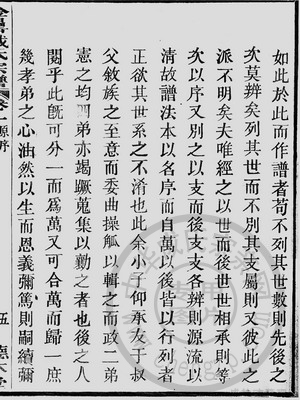 如此於此而作譜者苟不列其世數則先後之
次莫辨矣列其世而不別其支屬則又彼此之
派不明矣夫唯經之以世而後世世相承則等
次以序又別之以支而後支支各辨則源流以
清故譜法本以名序而自萬以後皆以行列者
正欲其世系之不淆也此余小子仰承友于叔
父敘族之至意而委曲操觚以輯之而政二弟
憲之均四弟亦竭蹶蒐集以勷之者也後之人
閱乎此既可分一而為萬又可合萬而歸一庶
幾孝弟之心油然以生而恩義彌篤則嗣續彌
源序
五